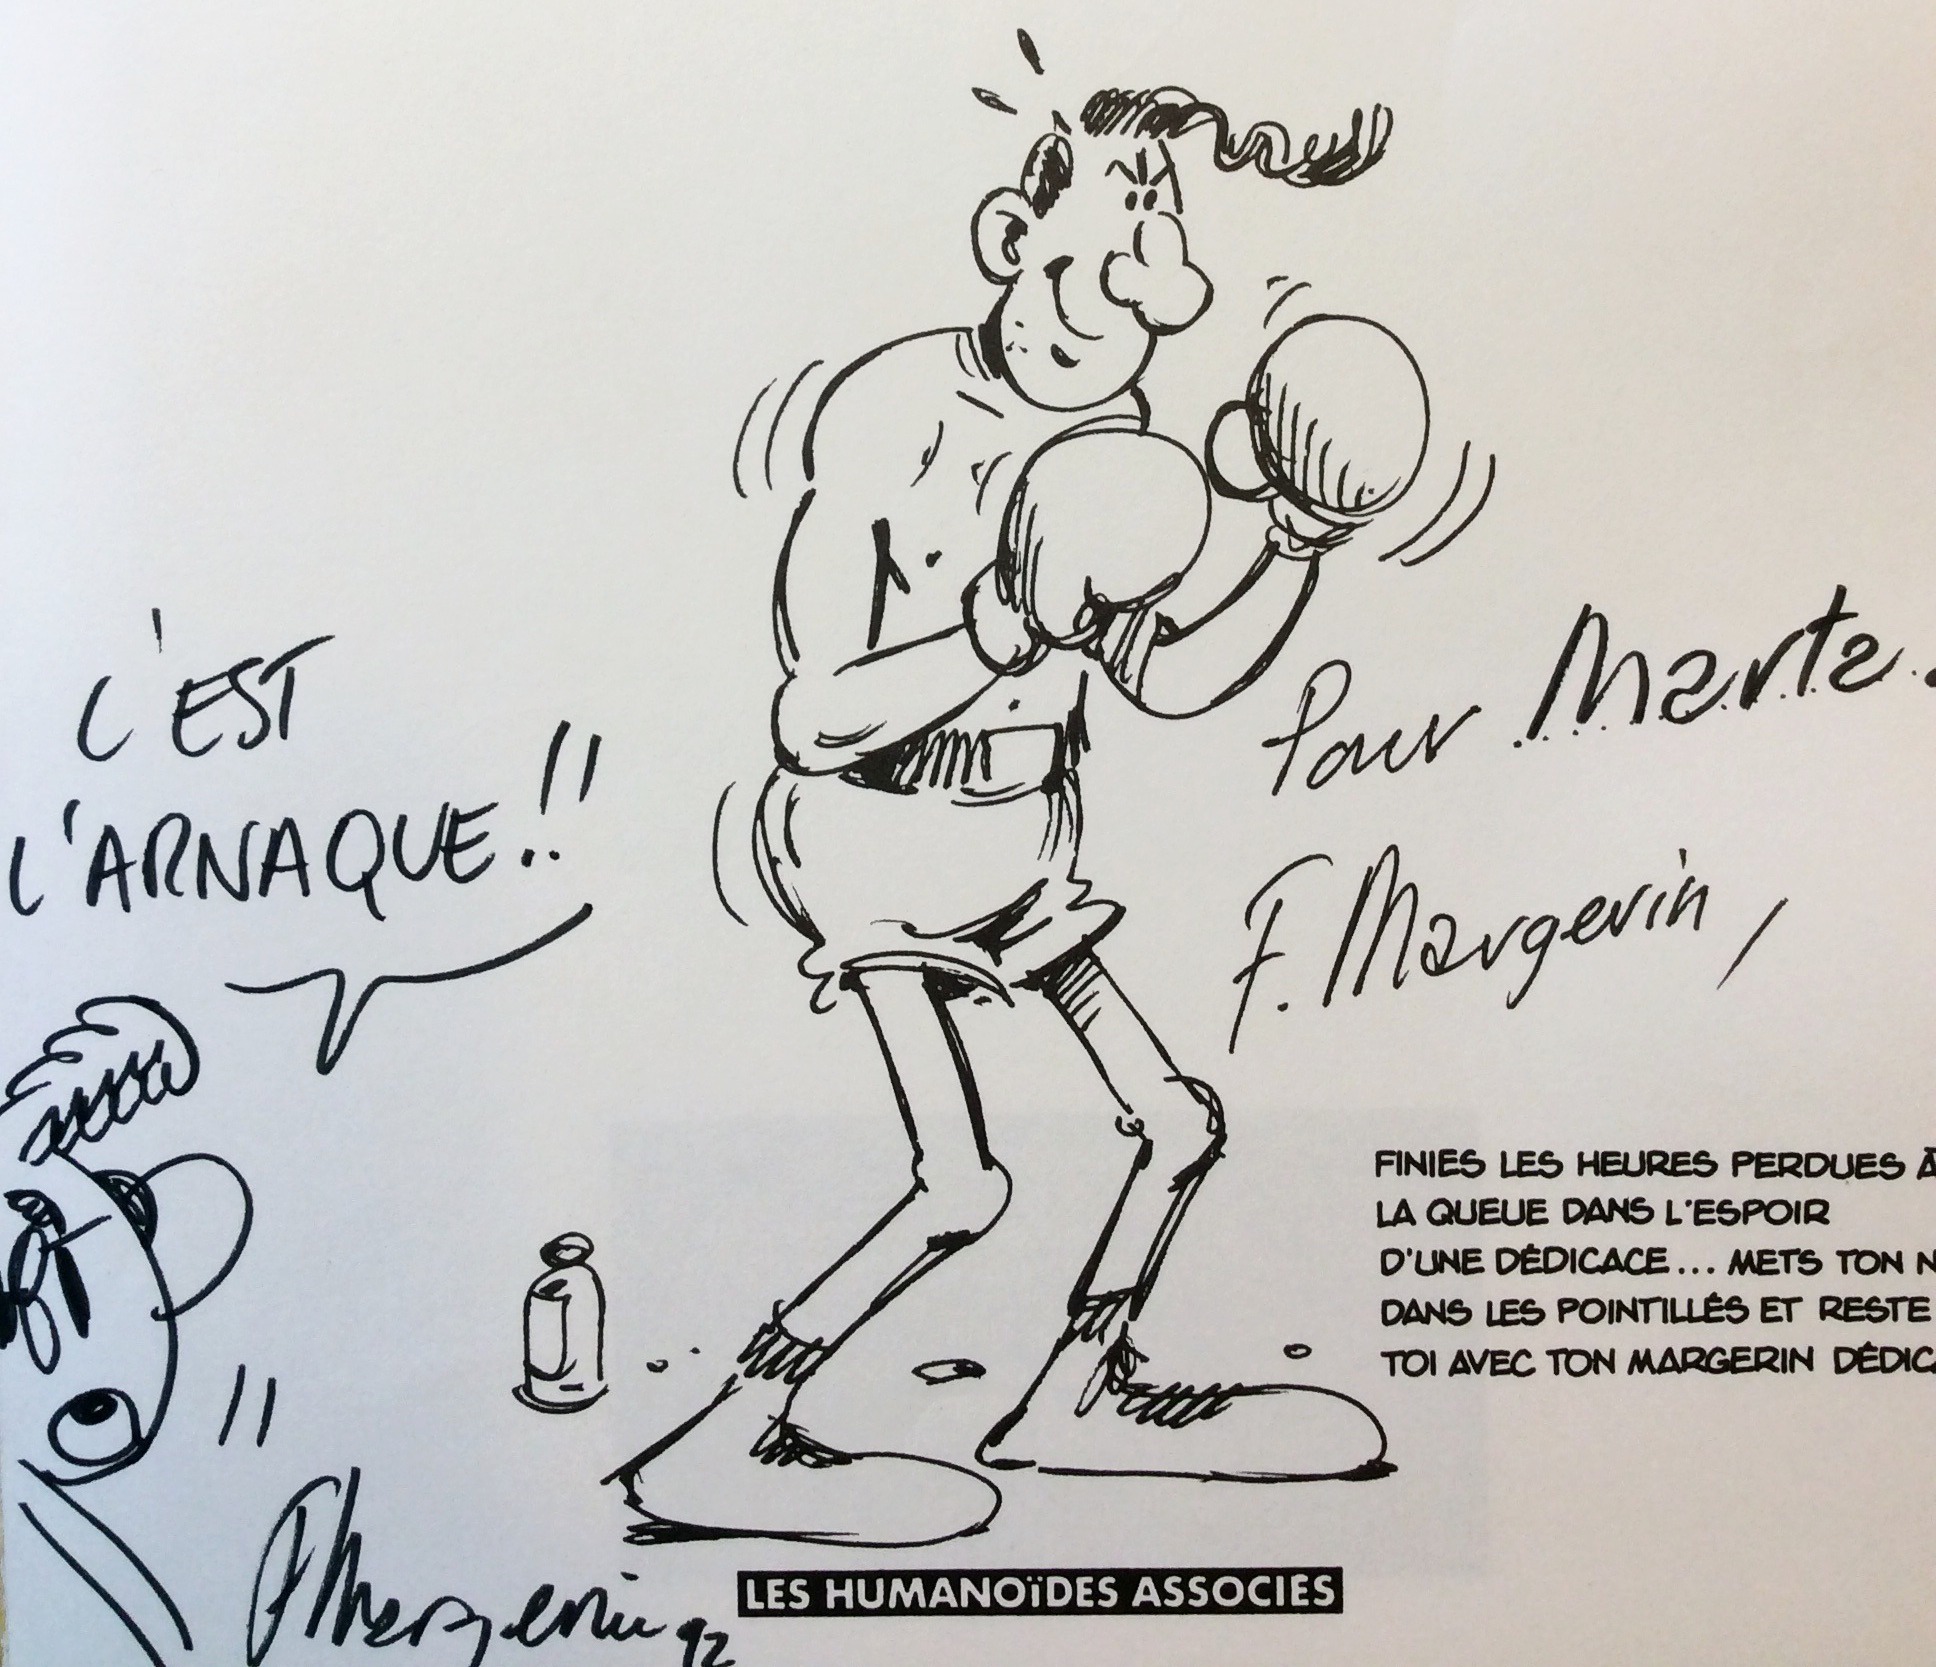 C'EST
L'ARNAQUE!!
Pour Marta.
F. Margerin,
FINIES LES HEURES PERDUES À
LA QUEUE DANS L'ESPOIR
D'UNE DÉDICACE... METS TON N
DANS LES POINTILLÉS ET RESTE
TOI AVEC TON MARGERIN DÉDIC
LES HUMANOïDES ASSOCIÉS
F Margerin 92